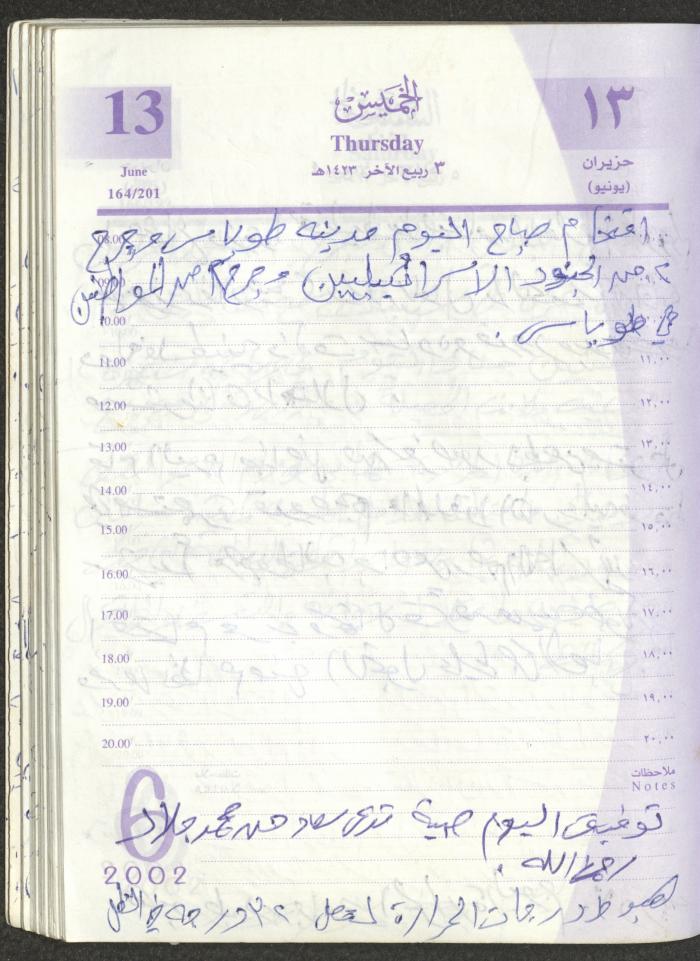 13
الخميس
١٣
Thursday
June
حزيران
164/201
٣ ربيع الآخر ١٤٢٣هـ
(يونيو)
اقتحام صباح اليوم مدينه طوباس وجرح
08.00
٢ من الجنود الاسرائيليين وجرح ٢ من المواطنين
09.00
في طوباس.
10.00
11.00 ١١,٠٠
12.00 ١٢,٠٠
13.00 ١٣,٠٠
14.00 ١٤,٠٠
15.00 ١٥,٠٠
16.00 ١٦,٠٠
17.00 ١٧,٠٠
18.00 ١٨,٠٠
19.00 ١٩,٠٠
20.00 ٢٠,٠٠
ملاحظات
Notes
6
اليوم صبية تدعى سعاد حسن محمد جلاد
2002
رحمها الله.
هبوط درجات الحرارة لتصل ٢٣ درجه في الظل